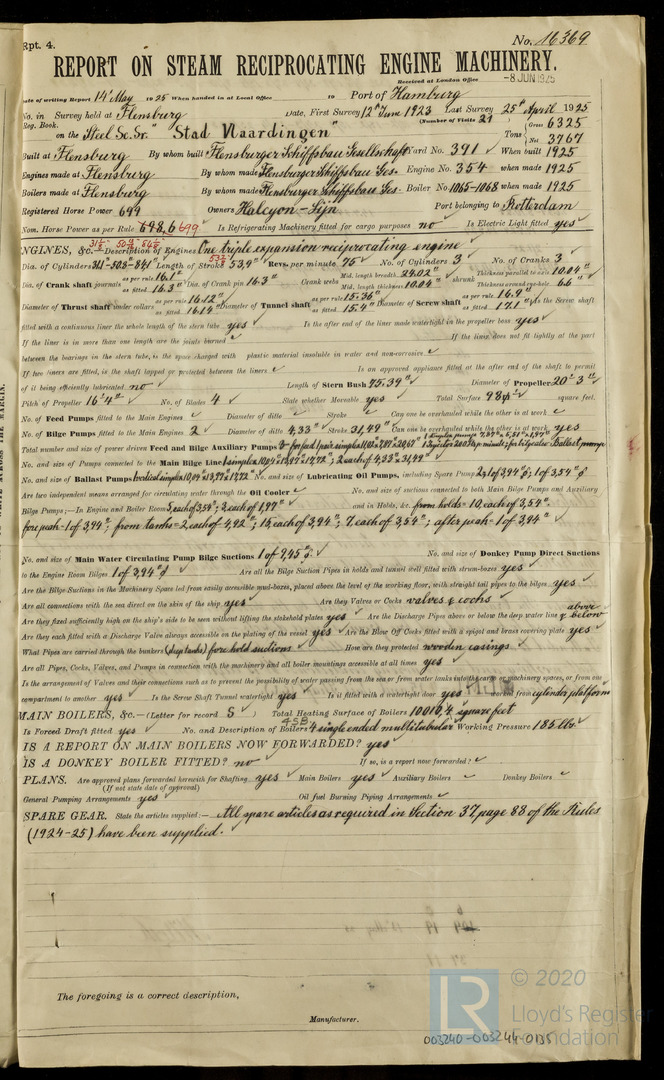 Rpt. 4.
No. 16369
REPORT ON STEAM RECIPROCATING ENGINE MACHINERY.
Received at London Office -8 JUN 1925
Date of writing Report 14th May 1925 When handed in at Local Office to Port of Hamburg
No. in Survey held at Flensburg Date, First Survey 12th June 1923 Last Survey 25th April 1925
Reg. Book. (Number of Visits 21)
on the Steel Sc. Sr. "Stad Vlaardingen" Tons Gross 6325 Net 3767
Built at Flensburg By whom built Flensburger Schiffsbau Gesellschaft Yard No. 391 When built 1925
Engines made at Flensburg By whom made Flensburger Schiffsbau Ges. Engine No. 354 when made 1925
Boilers made at Flensburg By whom made Flensburger Schiffsbau Ges. Boiler No. 1065-1068 when made 1925
Registered Horse Power 699 Owners Halcyon-Lijn Port belonging to Rotterdam
Nom. Horse Power as per Rule 698,6 699 Is Refrigerating Machinery fitted for cargo purposes no Is Electric Light fitted yes
ENGINES, &c.— Description of Engines One triple expansion reciprocating engine
Dia. of Cylinders Length of Stroke 53,9" Revs. per minute 75 No. of Cylinders 3 No. of Cranks 3
Dia. of Crank shaft journals as per rule 16.1" as fitted 16.3" Dia. of Crank pin 16.3" Crank webs Mid. length breadth 24.02" Mid. length thickness 10.04" shrunk Thickness parallel to axis 10.04" Thickness around eye-hole 6.6"
Diameter of Thrust shaft under collars as per rule 16.12" as fitted 16.14" Diameter of Tunnel shaft as per rule 15.36" as fitted 15.4" Diameter of Screw shaft as per rule 16.9" as fitted 17.1" Is the Screw shaft
fitted with a continuous liner the whole length of the stern tube yes Is the after end of the liner made watertight in the propeller boss yes
If the liner is in more than one length are the joints burned If the liner does not fit tightly at the part
between the bearings in the stern tube, is the space charged with plastic material insoluble in water and non-corrosive
If two liners are fitted, is the shaft lapped or protected between the liners Is an approved appliance fitted at the after end of the shaft to permit
of it being efficiently lubricated no Length of Stern Bush 75.39" Diameter of Propeller 20' 3"
Pitch of Propeller 16'4" No. of Blades 4 State whether Moveable yes Total Surface 98 square feet.
No. of Feed Pumps fitted to the Main Engines Diameter of ditto Stroke Can one be overhauled while the other is at work
No. of Bilge Pumps fitted to the Main Engines 2 Diameter of ditto 4,33" Stroke 31,49" Can one be overhauled while the other is at work yes
Total number and size of power driven Feed and Bilge Auxiliary Pumps
No. and size of Pumps connected to the Main Bilge Line 1 simplex 10,04 x 13,97 x 17,72"; 2 each of 4,33 x 31,49"
No. and size of Ballast Pumps 1 vertical simplex 10,04 x 13,97 x 17,72 No. and size of Lubricating Oil Pumps, including Spare Pump
Are two independent means arranged for circulating water through the Oil Cooler No. and size of suctions connected to both Main Bilge Pumps and Auxiliary
Bilge Pumps;—In Engine and Boiler Room 5 each of 3,54"; 2 each of 1,97" and in Holds, &c. from holds - 10 each of 3,54";
fore peak - 1 of 3,94"; from tanks - 2 each of 4,92"; 15 each of 3,94"; 7 each of 3,54"; after peak - 1 of 3,94"
No. and size of Main Water Circulating Pump Bilge Suctions 1 of 9,45" No. and size of Donkey Pump Direct Suctions
to the Engine Room Bilges 1 of 3,94" Are all the Bilge Suction Pipes in holds and tunnel well fitted with strum-boxes yes
Are the Bilge Suctions in the Machinery Space led from easily accessible mud-boxes, placed above the level of the working floor, with straight tail pipes to the bilges yes
Are all connections with the sea direct on the skin of the ship yes Are they Valves or Cocks valves & cocks
Are they fixed sufficiently high on the ship's side to be seen without lifting the stokehold plates yes Are the Discharge Pipes above or below the deep water line above & below
Are they each fitted with a Discharge Valve always accessible on the plating of the vessel yes Are the Blow Off Cocks fitted with a spigot and brass covering plate yes
What Pipes are carried through the bunkers (deep tanks) fore hold suctions How are they protected wooden casings
Are all Pipes, Cocks, Valves, and Pumps in connection with the machinery and all boiler mountings accessible at all times yes
Is the arrangement of Valves and their connections such as to prevent the possibility of water passing from the sea or from water tanks into the cargo or machinery spaces, or from one
compartment to another yes Is the Screw Shaft Tunnel watertight yes Is it fitted with a watertight door yes worked from cylinder platform
MAIN BOILERS, &c.— (Letter for record S) Total Heating Surface of Boilers 10010,4 square feet
4SB
Is Forced Draft fitted yes No. and Description of Boilers 4 single ended multitubular Working Pressure 185 lbs.
IS A REPORT ON MAIN BOILERS NOW FORWARDED? yes
IS A DONKEY BOILER FITTED? no If so, is a report now forwarded?
PLANS. Are approved plans forwarded herewith for Shafting yes Main Boilers yes Auxiliary Boilers Donkey Boilers
(If not state date of approval)
General Pumping Arrangements yes Oil fuel Burning Piping Arrangements
SPARE GEAR. State the articles supplied:— All spare articles as required in Section 37, page 88 of the Rules
(1924-25) have been supplied.
The foregoing is a correct description,
Manufacturer.
LR
© 2020
Lloyd's Register
Foundation
003240-003244-0135